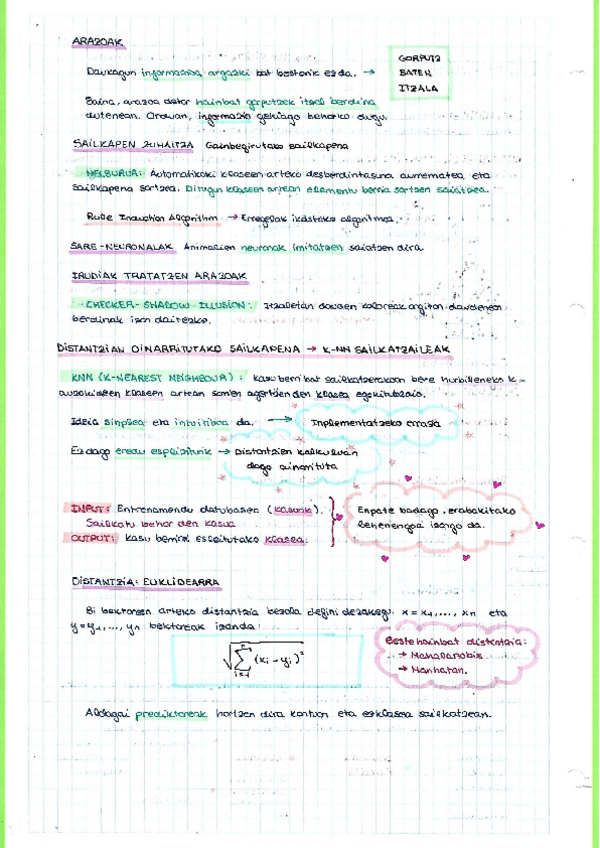 ARAZOAK
Daukagun informazioa argazki bat besterik ez da. →
GORPUTZ
BATEN
ITZALA
Baina, arazoa dator hainbat gorputzek itzal berdina
dutenean. Orduan, informazio gehiago beharko dugu.
SAILKAPEN ZUHAITZA Gainbegiratutako sailkapena
HELBURUA: Automatikoki klaseen arteko desberdintasuna aurrematea eta
sailkapena sortzea. Ditugun klaseen artean elementu berria sartzen saiatzea.
Rule Induction Algorithm → Erregelak ikasteko algoritmoa.
SARE-NEURONALAK Animalien neuronak imitatzen saiatzen dira
IRUDIAK TRATATZEN ARAZOAK
CHECKER-SHADOW ILLUSION: Itzaletan dauden koloreak argitan daudenen
berdinak izan daitezke.
DISTANTZIAN OINARRITUTAKO SAILKAPENA → K-NN SAILKATZAILEAK
KNN (K-NEAREST NEIGHBOUR): Kasu berri bat sailkatzerakoan bere hurbileneko K-
auzokideen klaseen artean sarrien agertzen den klasea egokituko zaio.
Ideia sinplea eta intuitiboa da. → Inplementatzeko erraza
Ez dago eredu espliziturik → Distantzien kalkuluan
dago oinarrituta
INPUT: Entrenamendu datubasea (kasuak).
Sailkatu behar den kasua
OUTPUT: kasu berriari esleitutako klasea.
Enpate badago, erabakitako
lehenengoa izango da.
DISTANTZIA: EUKLIDEARRA
Bi bektoreen arteko distantzia bezala defini dezakegu. x = x₁, ..., xn eta
y = y₁, ..., yn bektoreak izanda:
√∑ⁿᵢ₌₁ (xi - yi)²
Beste hainbat distantzia:
→ Mahalanobis
→ Manhatan.
Aldagai prediktoreak hartzen dira kontuan eta ez klasea sailkatzean.